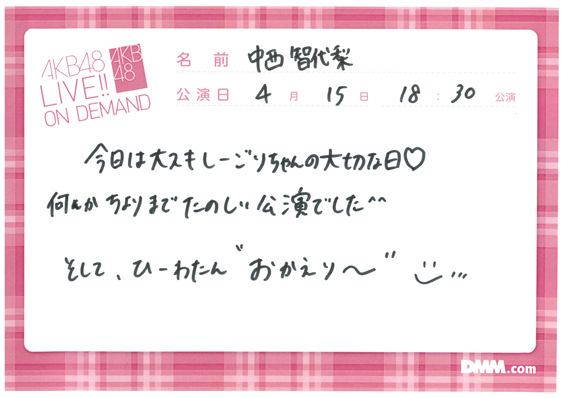 AKB48
LIVE!!
ON DEMAND
AKB
48
名前 中西智代梨
公演日 4月15日 18:30公演
今日は大スキしーごりちゃんの大切な日♡
何んかちよりまでたのしい公演でした^^
そして、ひーわたん"おかえり〜"
DMM.com